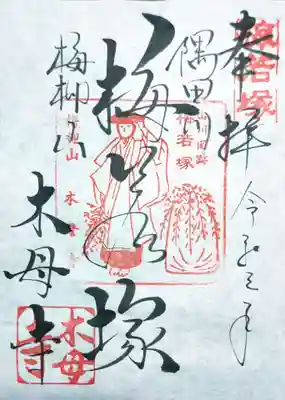 奉拝
令和三年
梅若塚
隅田川
梅若塚
梅若塚
梅柳山
木母寺
梅柳山
木母寺
木母寺